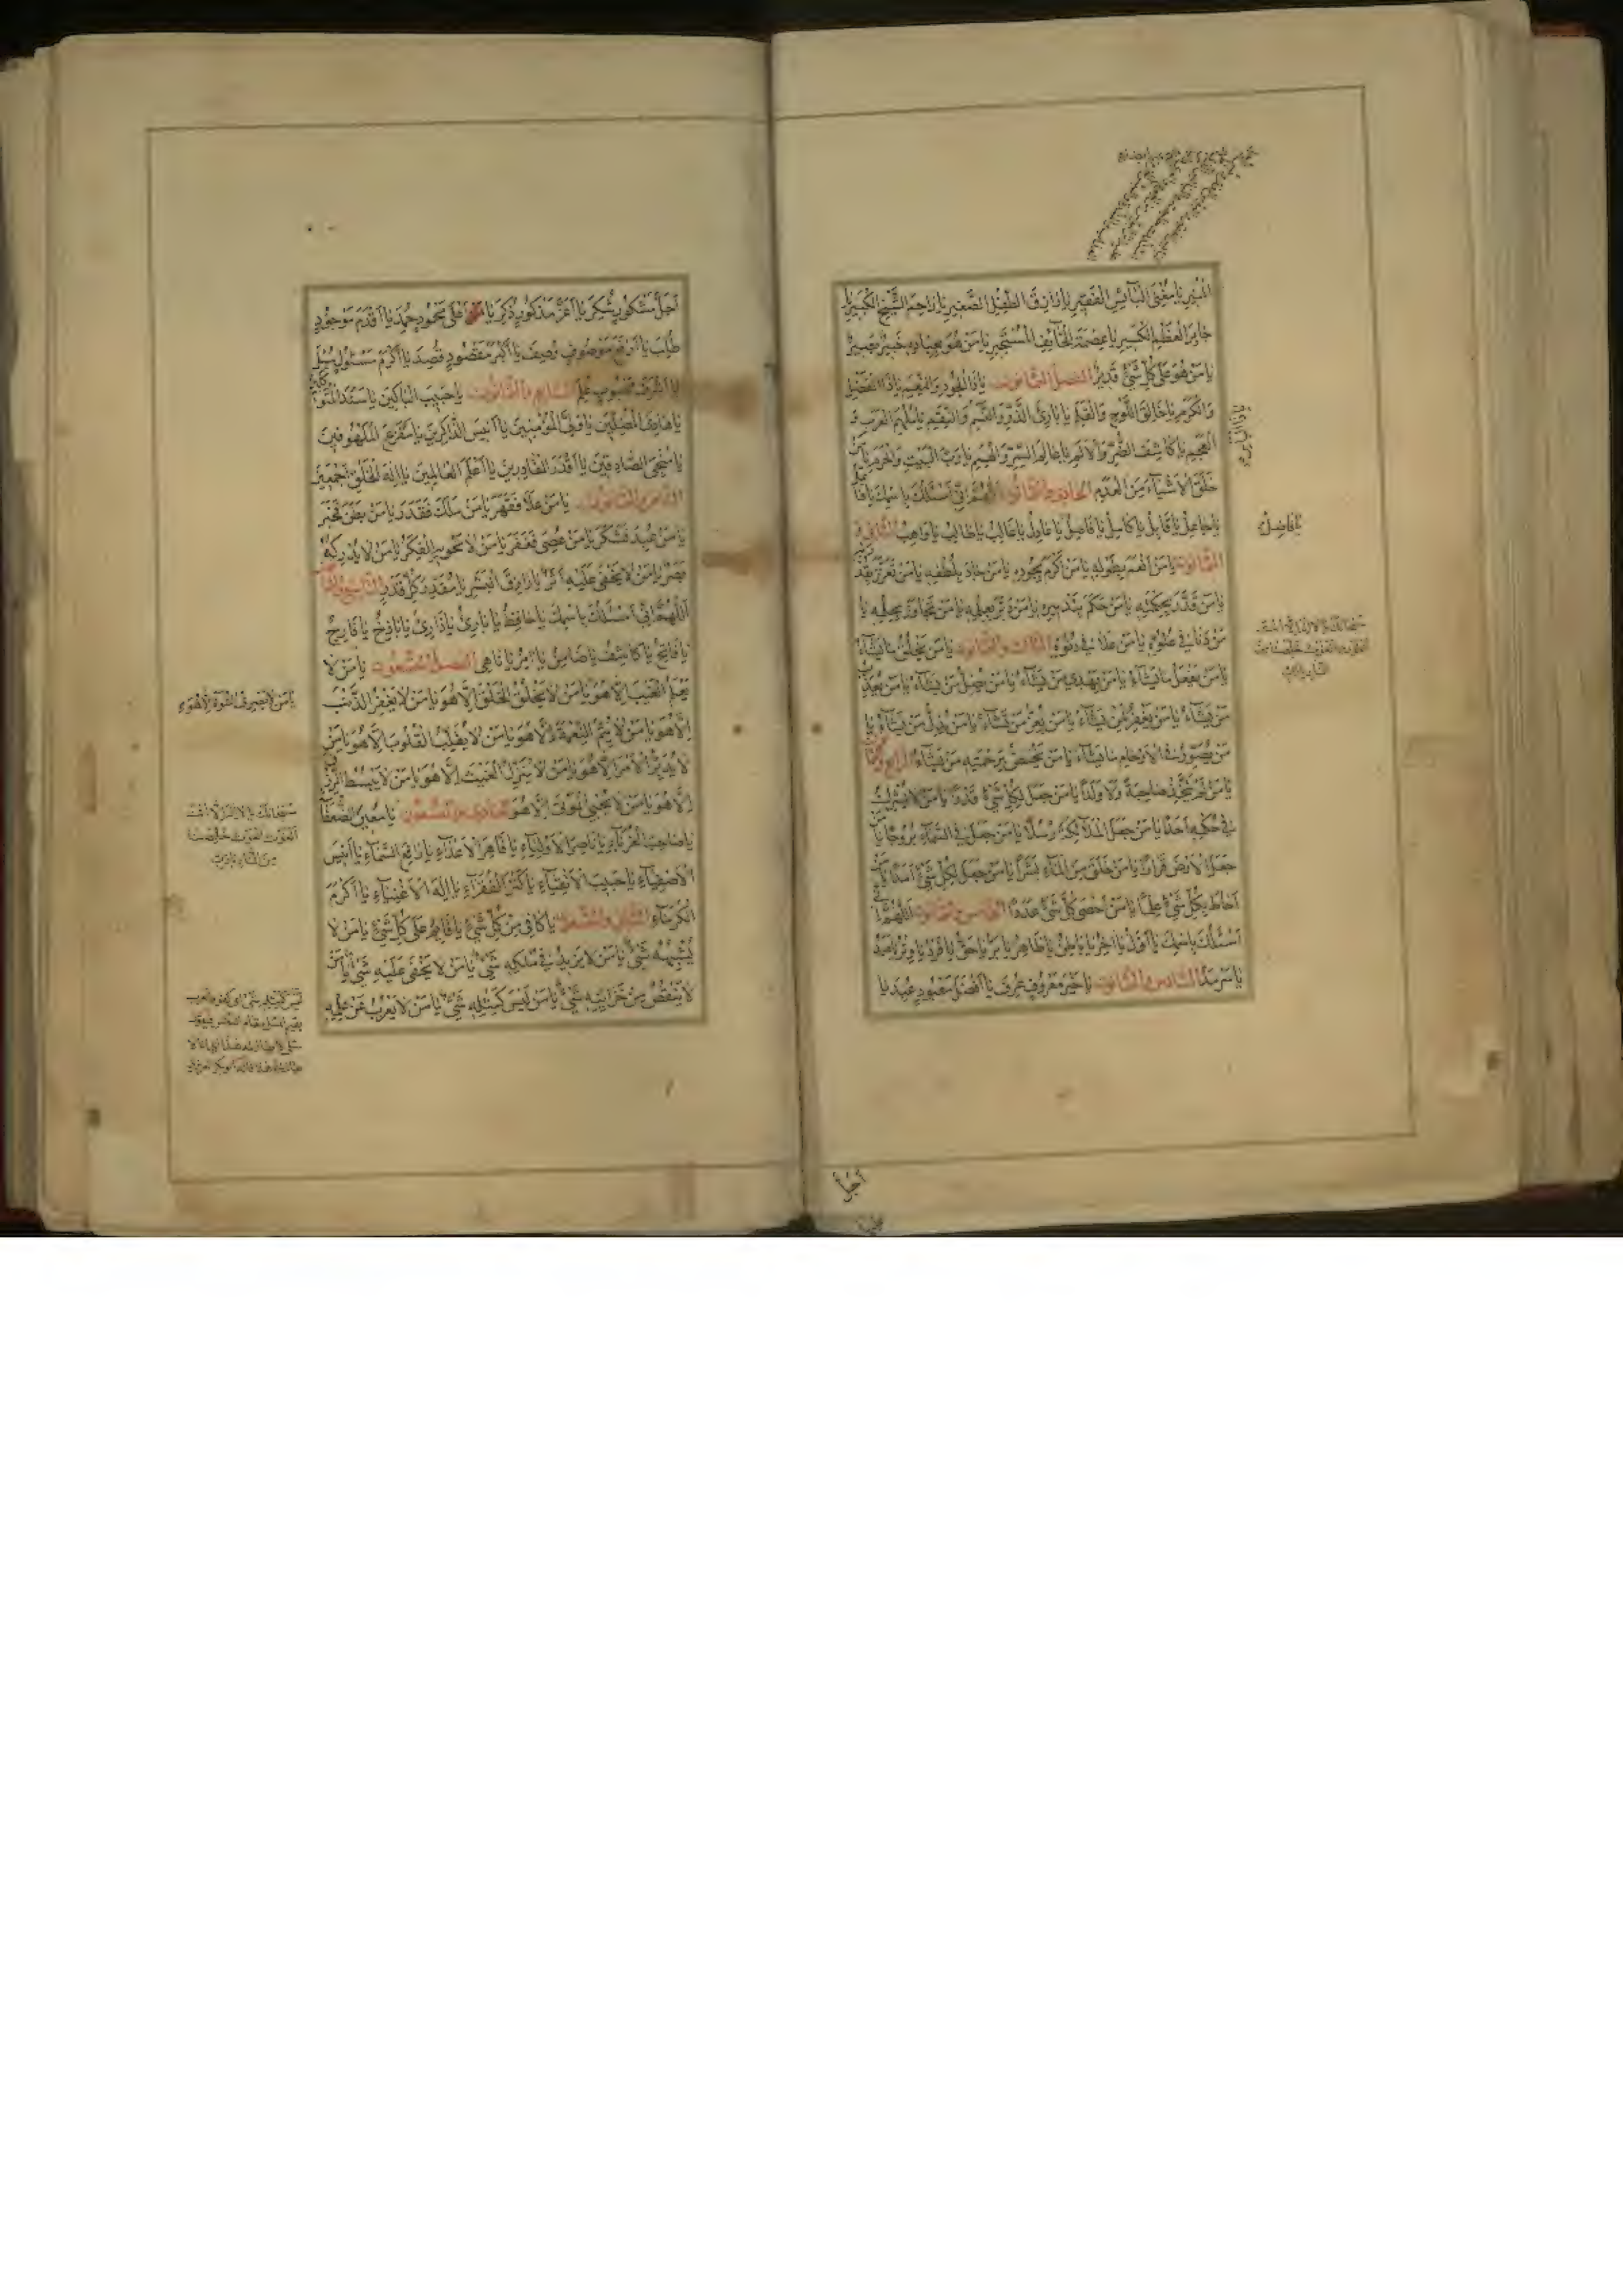 المنير يا مغني البائس الفقير يا رازق الطفل الصغير يا راحم الشيخ الكبير يا
جابر العظم الكسير يا عصمة الخائف المستجير يا من هو بعباده خبير بصير
يا من هو على كل شيء قدير الفصل الثمانون يا ذا الجود والنعم يا ذا الفضل
والكرم يا خالق اللوح والقلم يا بارئ الذر والنسم يا ذا البأس والنقم يا ملهم العرب و
العجم يا كاشف الضر والألم يا عالم السر والهمم يا رب البيت والحرم يا من
خلق الأشياء من العدم الحادي والثمانون اللهم إني أسئلك باسمك يا فاعل
يا جاعل يا قابل يا كامل يا فاصل يا عادل يا غالب يا طالب يا واهب الثاني و
الثمانون يا من أنعم بطوله يا من أكرم بجوده يا من جاد بلطفه يا من تعزز بقدرته
يا من قدر بحكمته يا من حكم بتدبيره يا من دبر بعلمه يا من تجاوز بحلمه يا
من دنا في علوه يا من علا في دنوه الثالث والثمانون يا من يخلق ما يشاء
يا من يفعل ما يشاء يا من يهدي من يشاء يا من يضل من يشاء يا من يعذب
من يشاء يا من يغفر لمن يشاء يا من يعز من يشاء يا من يذل من يشاء يا
من يصور في الأرحام ما يشاء يا من يختص برحمته من يشاء الرابع والثمانون
يا من لم يتخذ صاحبة ولا ولدا يا من جعل لكل شيء قدرا يا من لا يشرك
في حكمه أحدا يا من جعل الملائكة رسلا يا من جعل في السماء بروجا يا من
جعل الأرض قرارا يا من خلق من الماء بشرا يا من جعل لكل شيء أمدا يا من
أحاط بكل شيء علما يا من أحصى كل شيء عددا الخامس والثمانون اللهم إني
أسئلك باسمك يا أول يا آخر يا باطن يا ظاهر يا بر يا حق يا فرد يا وتر يا صمد
يا سرمد السادس والثمانون يا خير معروف عرف يا أفضل معبود عبد يا
يا فاضل
أجل
أجل مشكور شكر يا أعز مذكور ذكر يا أعلى محمود حمد يا أقدم موجود
طلب يا أرفع موصوف وصف يا أكبر مقصود قصد يا أكرم مسئول سئل
يا أشرف محبوب علم السابع والثمانون يا حبيب الباكين يا سند المتوكلين
يا هادي المضلين يا ولي المؤمنين يا أنيس الذاكرين يا مفزع الملهوفين
يا منجي الصادقين يا أقدر القادرين يا أعلم العالمين يا إله الخلق أجمعين
الثامن والثمانون يا من علا فقهر يا من ملك فقدر يا من بطن فخبر
يا من عبد فشكر يا من عصي فغفر يا من لا تحويه الفكر يا من لا يدركه
بصر يا من لا يخفى عليه أثر يا رازق البشر يا مقدر كل قدر التاسع والثمانون
اللهم إني أسئلك باسمك يا حافظ يا بارئ يا ذارئ يا باذخ يا فارج
يا فاتح يا كاشف يا ضامن يا آمر يا ناهي الفصل التسعون يا من لا
يعلم الغيب إلا هو يا من لا يخلق الخلق إلا هو يا من لا يغفر الذنب
إلا هو يا من لا يتم النعمة إلا هو يا من لا يقلب القلوب إلا هو يا من
لا يدبر الأمر إلا هو يا من لا ينزل الغيث إلا هو يا من لا يبسط الرزق
إلا هو يا من لا يحيي الموتى إلا هو الحادي والتسعون يا معين الضعفاء
يا صاحب الغرباء يا ناصر الأولياء يا قاهر الأعداء يا رافع السماء يا أنيس
الأصفياء يا حبيب الأتقياء يا كنز الفقراء يا إله الأغنياء يا أكرم
الكرماء الثاني والتسعون يا كافي من كل شيء يا قائم على كل شيء يا من لا
يشبهه شيء يا من لا يزيد في ملكه شيء يا من لا يخفى عليه شيء يا من
لا ينقص من خزائنه شيء يا من ليس كمثله شيء يا من لا يعزب عن علمه
يا من لا يصرف السوء إلا هو
سبحانك يا لا إله إلا أنت
الغوث الغوث خلصنا
من النار يا رب